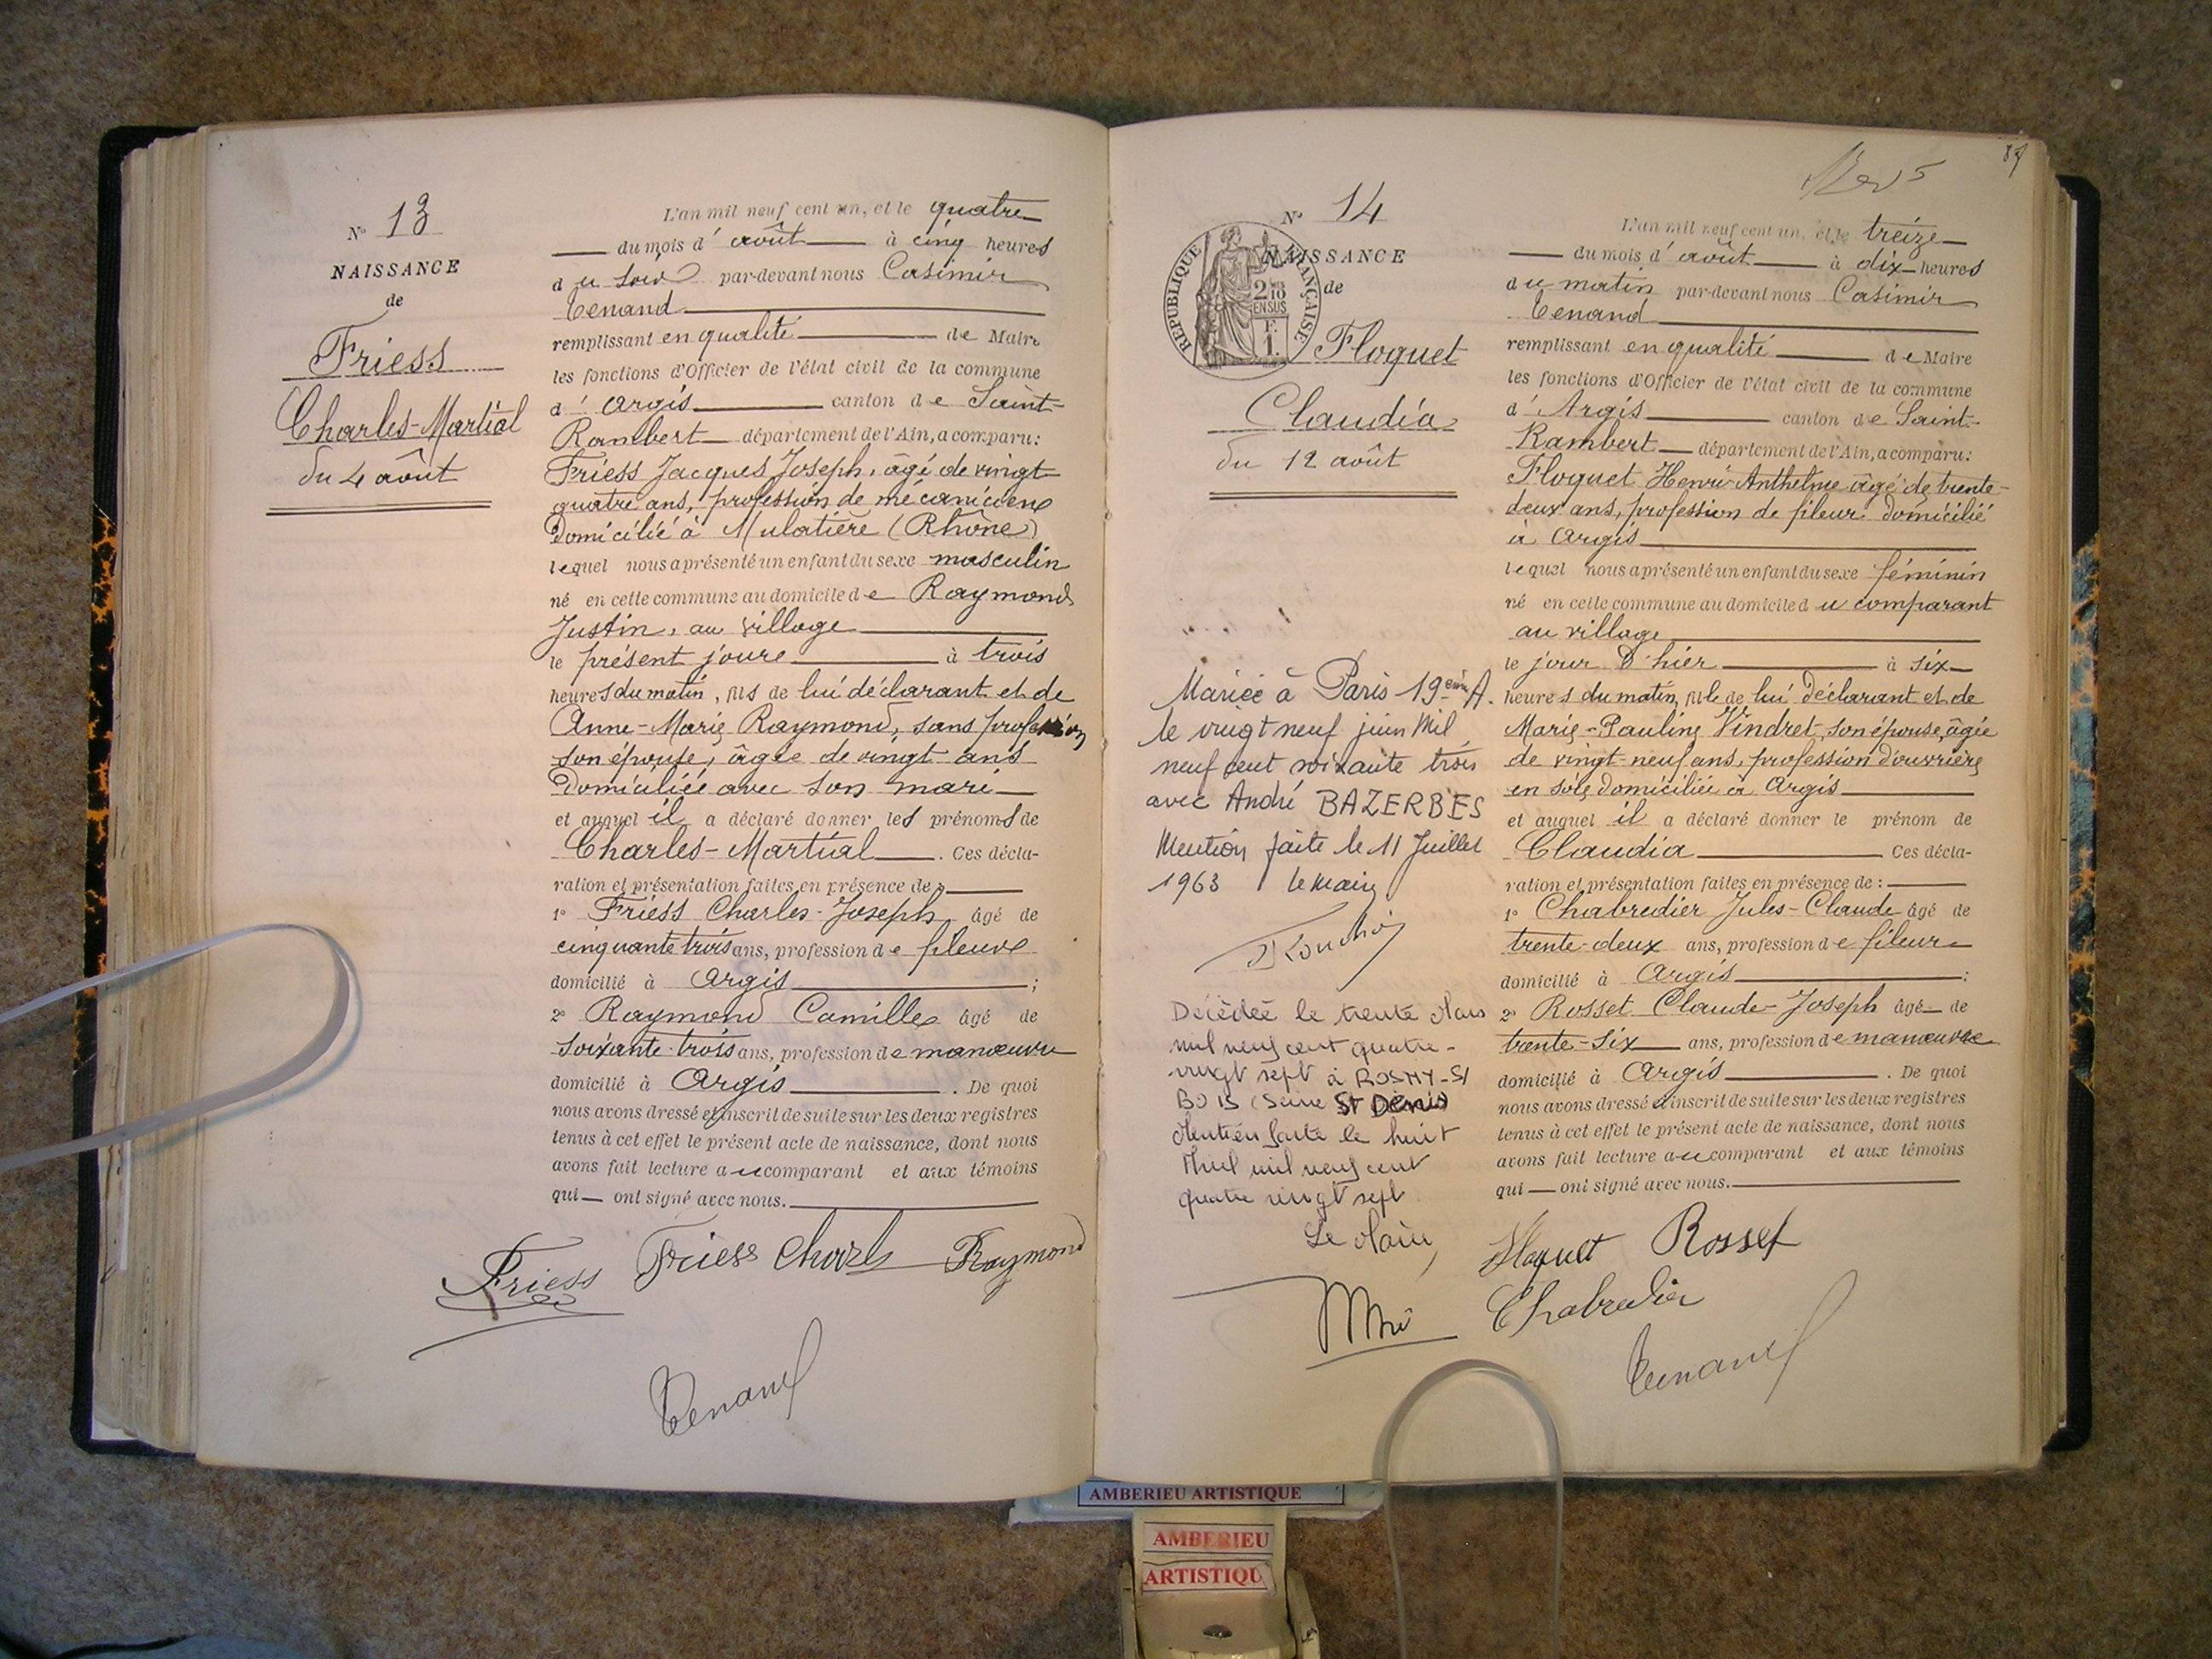 N° 13
NAISSANCE
de
Friess
Charles-Martial
du 4 août
L'an mil neuf cent un, et le quatre
du mois d'août à cinq heures
du soir par-devant nous Casimir
Tenand
remplissant en qualité de Maire
les fonctions d'Officier de l'état civil de la commune
d'Argis canton de Saint-
Rambert département de l'Ain, a comparu:
Friess Jacques Joseph, âgé de vingt
quatre ans, profession de mécanicien
domicilié à Mulatière (Rhône)
lequel nous a présenté un enfant du sexe masculin
né en cette commune au domicile de Raymond
Justin, au village
le présent jour à trois
heures du matin, fils de lui déclarant et de
Anne-Marie Raymond, sans profession
son épouse, âgée de vingt ans
domiciliée avec son mari
et auquel il a déclaré donner les prénoms de
Charles-Martial. Ces décla-
ration et présentation faites en présence de:
1° Friess Charles-Joseph âgé de
cinquante trois ans, profession de fileur
domicilié à Argis;
2° Raymond Camille âgé de
soixante-trois ans, profession de manœuvre
domicilié à Argis. De quoi
nous avons dressé et inscrit de suite sur les deux registres
tenus à cet effet le présent acte de naissance, dont nous
avons fait lecture au comparant et aux témoins
qui ont signé avec nous.
Friess Friess Charles Raymond
Tenand
87
N° 14
NAISSANCE
de
RÉPUBLIQUE FRANÇAISE
2/10 EN SUS
F.
1.
Floquet
Claudia
du 12 août
Mariée à Paris 19ème A.
le vingt neuf juin mil
neuf cent soixante trois
avec André BAZERBES
Mention faite le 11 Juillet
1963 le Maire
Décédée le trente Mars
mil neuf cent quatre-
vingt sept à ROSNY-S/
BOIS (Seine St Denis)
Mention faite le huit
Avril mil neuf cent
quatre vingt sept
Le Maire,
L'an mil neuf cent un, et le treize
du mois d'août à dix heures
du matin par-devant nous Casimir
Tenand
remplissant en qualité de Maire
les fonctions d'Officier de l'état civil de la commune
d'Argis canton de Saint-
Rambert département de l'Ain, a comparu:
Floquet Henri-Anthelme âgé de trente-
deux ans, profession de fileur domicilié
à Argis
lequel nous a présenté un enfant du sexe féminin
né en cette commune au domicile du comparant
au village
le jour d'hier à six
heures du matin, fille de lui déclarant et de
Marie-Pauline Vindret, son épouse, âgée
de vingt-neuf ans, profession d'ouvrière
en soie domiciliée à Argis
et auquel il a déclaré donner le prénom de
Claudia Ces décla-
ration et présentation faites en présence de:
1° Chabredier Jules-Claude âgé de
trente-deux ans, profession de fileur
domicilié à Argis;
2° Rosset Claude-Joseph âgé de
trente-six ans, profession de manœuvre
domicilié à Argis. De quoi
nous avons dressé et inscrit de suite sur les deux registres
tenus à cet effet le présent acte de naissance, dont nous
avons fait lecture au comparant et aux témoins
qui ont signé avec nous.
Floquet Rosset
Chabredier
Tenand
AMBERIEU ARTISTIQUE
AMBERIEU
ARTISTIQU